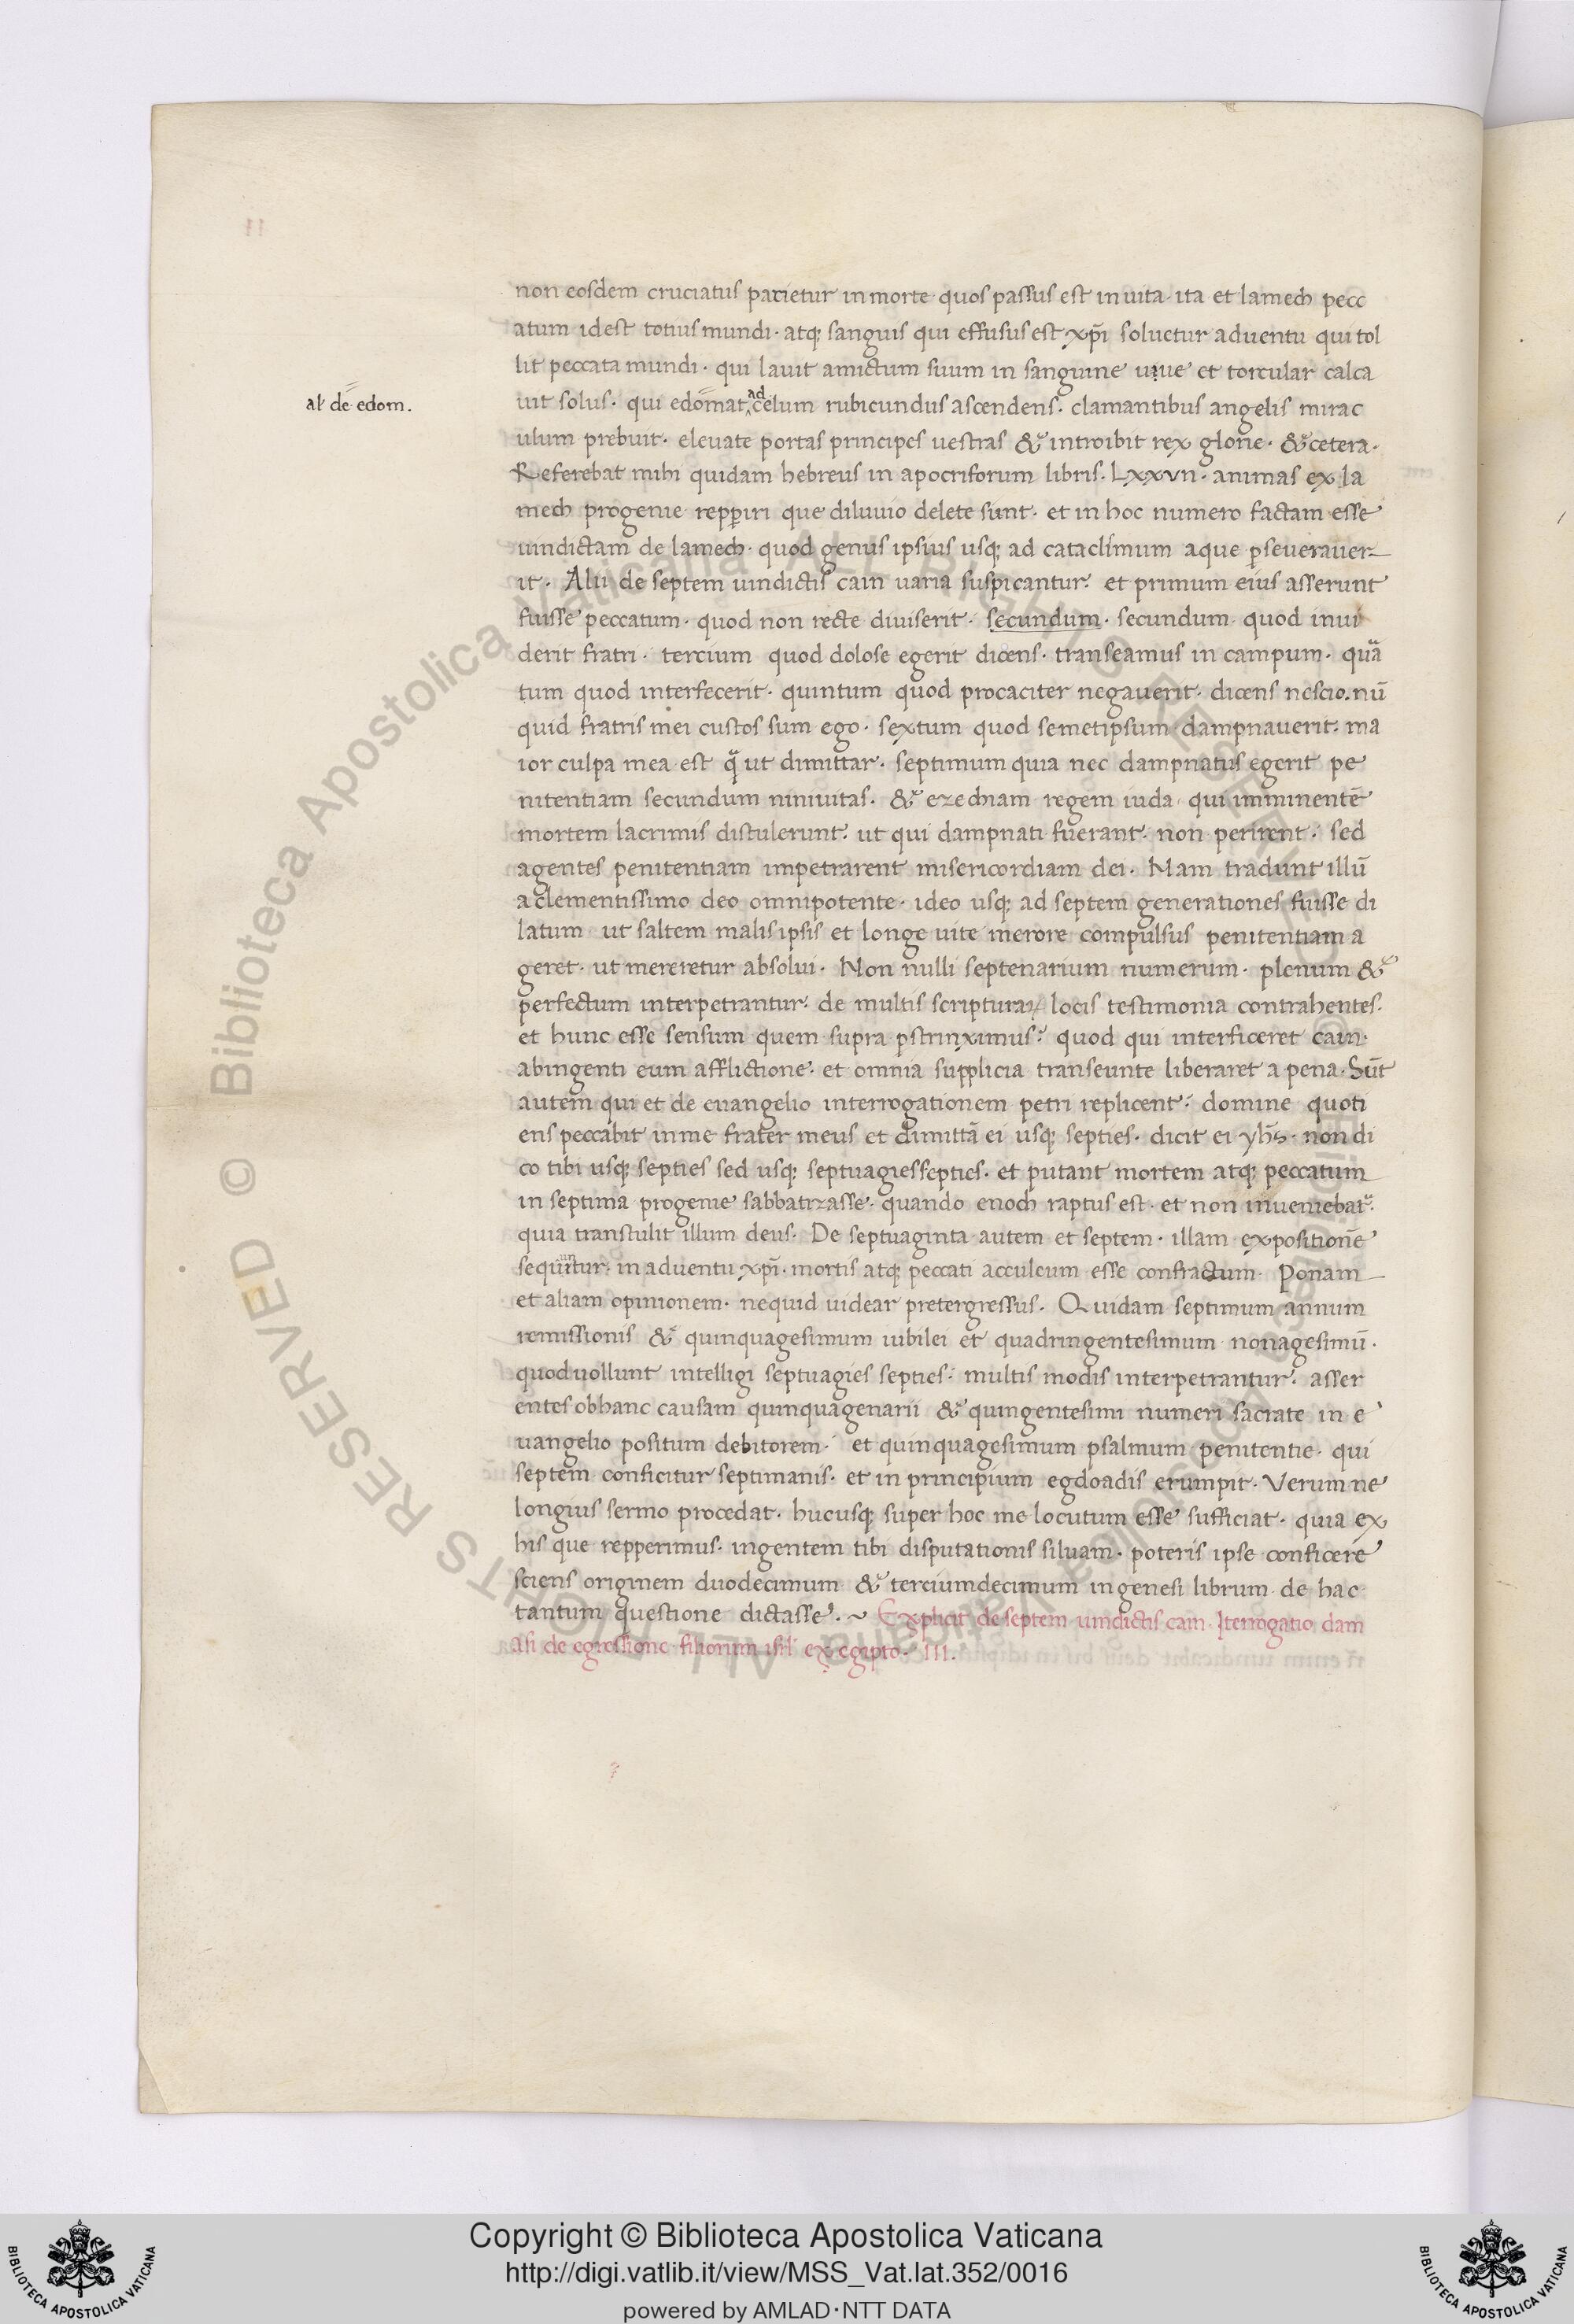 non eosdem cruciatus patietur in morte quos passus est in uita· ita et lamech pecc
atum idest totius mundi· atq; sanguis qui effusus est xp̄i soluetur aduentu qui tol
lit peccata mundi· qui lauit amictum suum in sanguine uiue et torcular calca
al' de edom.
uit solus· qui edomat ad celum rubicundus ascendens· clamantibus angelis mirac
ulum prebuit· eleuate portas principes uestras & introibit rex glorie· & cetera·
Referebat mihi quidam hebreus in apocriforum libris· Lxxvii· animas ex la
mech progenie repperiri que diluuio delete sunt· et in hoc numero factam esse
uindictam de lamech· quod genus ipsius usq; ad cataclimum aque pseuerauer
it· Alii de septem uindictis cain uaria suspicantur· et primum eius asserunt
fuisse peccatum· quod non recte diuiserit· secundum· secundum quod inui
derit fratri· tercium quod dolose egerit dicens· transeamus in campum· quā
tum quod interfecerit· quintum quod procaciter negauerit· dicens nescio. nū
quid fratris mei custos sum ego· sextum quod semetipsum dampnauerit· ma
ior culpa mea est q̄ ut dimittar· septimum quia nec dampnatus egerit pe
nitentiam secundum niniuitas· & ezechiam regem iuda qui imminentē
mortem lacrimis distulerunt· ut qui dampnati fuerant· non perirent· sed
agentes penitentiam impetrarent misericordiam dei· Nam tradunt illū
a clementissimo deo omnipotente· ideo usq; ad septem generationes fuisse di
latum ut saltem malis ipsis et longe uite merore compulsus penitentiam a
geret· ut mereretur absolui· Non nulli septenarium numerum· plenum &
perfectum interpetrantur· de multis scripturaꝝ locis testimonia contrahentes·
et hunc esse sensum quem supra pstrinximus· quod qui interficeret cain·
abingenti eum afflictione· et omnia supplicia transeunte liberaret a pena· Sūt
autem qui et de euangelio interrogationem petri replicent· domine quoti
ens peccabit in me frater meus et dimittā ei usq; septies· dicit ei yh̄s· non di
co tibi usq; septies sed usq; septuagiessepties· et putant mortem atq; peccatum
in septima progenie sabbatizasse· quando enoch raptus est· et non inueniebat᷑·
quia transtulit illum deus· De septuaginta autem et septem· illam expositionē
sequuntur· in aduentu xp̄i· mortis atq; peccati acculeum esse confractum· Ponam
et aliam opinionem· nequid uidear pretergressus· Quidam septimum annum
remissionis & quinquagesimum iubilei et quadringentesimum nonagesimū·
quod uollunt intelligi septuagies septies· multis modis interpetrantur· asser
entes obhanc causam quinquagenarii & quingentesimi numeri sacrate in e
uangelio positum debitorem· et quinquagesimum psalmum penitentie· qui
septem conficitur septimanis· et in principium egdoadis erumpit· Verum ne
longius sermo procedat· hucusq; super hoc me locutum esse sufficiat· quia ex
his que repperimus· ingentem tibi disputationis siluam· poteris ipse conficere
sciens originem duodecimum & terciumdecimum in genesi librum de hac
tantum questione dictasse·~ Explicit de septem uindictis cain· Iterrogatio dam
asi de egressione filiorum isrl' ex egipto· III.
Copyright © Biblioteca Apostolica Vaticana
http://digi.vatlib.it/view/MSS_Vat.lat.352/0016
powered by AMLAD·NTT DATA